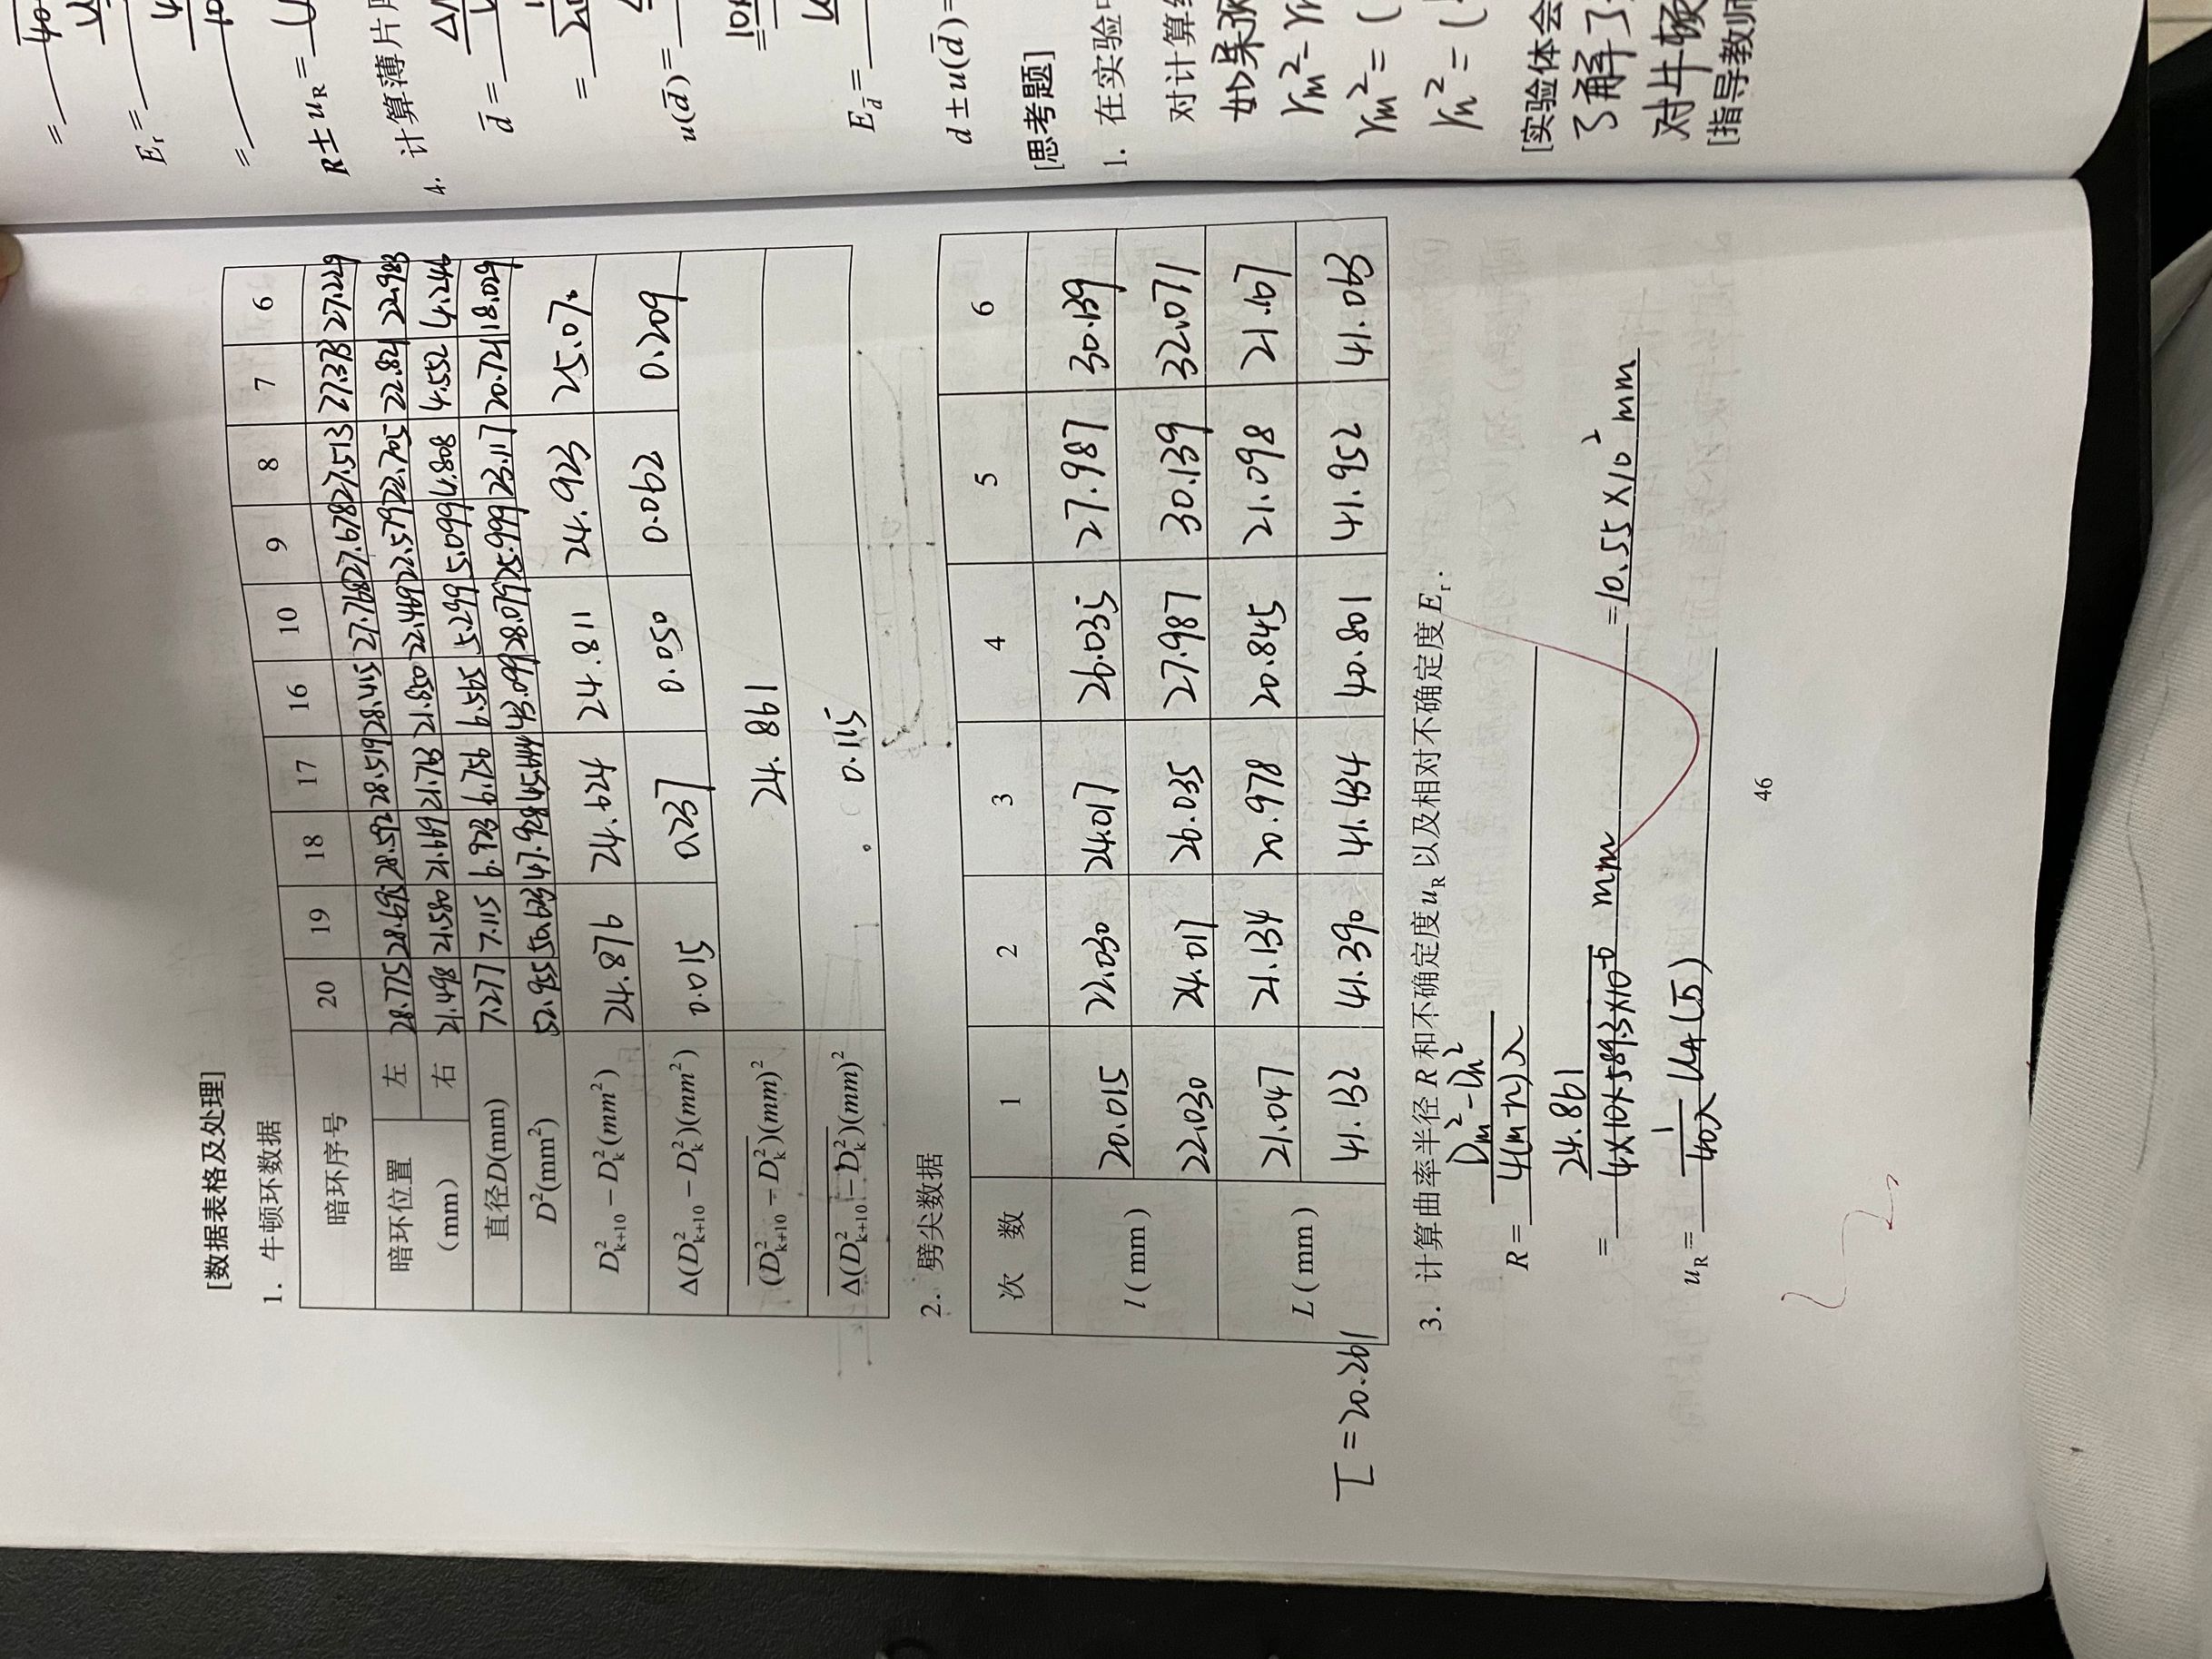 [数据表格及处理]
1. 牛顿环数据
暗环序号 20 19 18 17 16 10 9 8 7 6
暗环位置（mm） 左 28.775 28.695 28.592 28.519 28.415 27.768 27.678 27.513 27.373 27.229
右 21.498 21.580 21.669 21.763 21.850 22.469 22.579 22.705 22.821 22.983
直径D(mm) 7.277 7.115 6.923 6.756 6.565 5.299 5.099 4.808 4.552 4.246
D²(mm²) 52.955 50.623 47.928 45.644 43.099 28.079 25.999 23.117 20.721 18.029
D²k+10 − D²k (mm²) 24.876 24.624 24.811 24.923 25.070
Δ(D²k+10 − D²k)(mm²) 0.015 0.237 0.050 0.062 0.209
(D²k+10 − D²k)(mm)² 24.861
Δ(D²k+10 − D²k)(mm)² 0.115
2. 劈尖数据
次 数 1 2 3 4 5 6
l ( mm ) 20.015 22.030 24.017 26.035 27.987 30.139
22.030 24.017 26.035 27.987 30.139 32.071
L ( mm ) 21.047 21.134 20.978 20.845 21.098 21.107
41.132 41.390 41.434 40.801 41.952 41.063
= 20.261
3. 计算曲率半径 R 和不确定度 uR 以及相对不确定度 Er.
R = Dm² − Dn² / 4(m-n)λ
= 24.861 / 4×10×589.3×10⁻⁶ mm = 10.55 × 10² mm
uR = 1/40λ UA
46
=
Er =
=
R ± uR =
计算薄片
4.
d̄ =
=
u(d̄) =
Ed̄ =
d ± u(d̄) =
[思考题]
1. 在实验
对计算
如果
rm² −
rm² = (
rn² = (
[实验体会
了解了
对牛顿
[指导教师